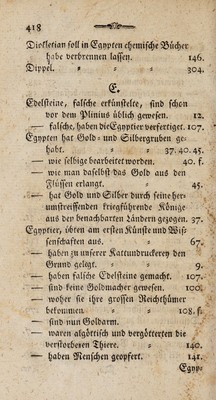 418
Diokletian soll in Egypten chemische Bücher
habe verbrennen lassen. 146.
Dippel. 304.
E.
Edelsteine, falsche erkünstelte, sind schon
vor dem Plinius üblich gewesen. 12.
— falsche, haben die Egyptier verfertiget. 107.
Egypten hat Gold- und Silbergruben ge-
habt. 37. 40. 45.
— wie selbige bearbeitet worden. 40. f.
— wie man daselbst das Gold aus den
Flüssen erlangt. 45.
— hat Gold und Silber durch seine her-
umstreiffenden kriegführende Könige
aus den benachbarten Ländern gezogen. 37.
Egyptier, übten am ersten Künste und Wis-
senschaften aus. 67.
— haben zu unserer Kattundruckerey den
Grund gelegt. 9.
— haben falsche Edelsteine gemacht. 107.
— sind keine Goldmacher gewesen. 100.
— woher sie ihre grossen Reichthümer
bekommen. 108. f.
— sind nun Goldarm.
— waren algöttisch und vergötterten die
verstorbenen Thiere. 140.
— haben Menschen geopfert. 141.
Egyp-